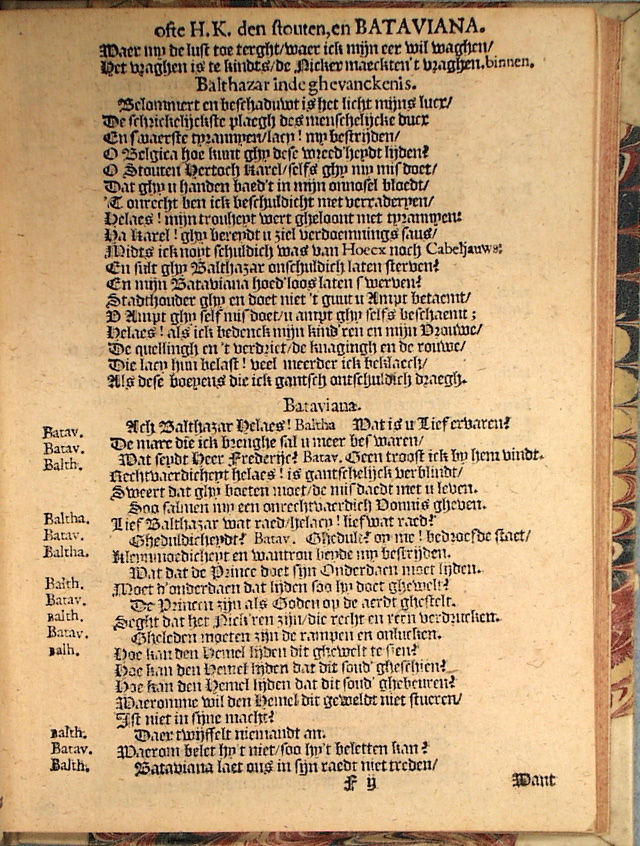 ofte H.K. den stouten, en BATAVIANA.
Waer my de lust toe terght/waer ick mijn eer wil waghen/
Het vraghen is te kindts/de Nicker maeckten't vraghen.binnen.
Balthazar inde ghevanckenis.
Belommert en beschaduwt is het licht mijns lucx/
De schrickelijckste plaegh des menschelijcke drucx
En swaerste tyrannyen/lacy! my bestrijden/
O Belgica hoe kunt ghy dese wreedheydt lijden?
O Stouten Hertoch Karel/selfs ghy my misdoet/
Dat ghy u handen baed't in mijn onnosel bloedt/
'T onrecht ben ick beschuldicht met verraderyen/
Helaes! mijn trouheyt wert gheloont met tyrannyen!
Ha Karel! ghy bereydt u ziel verdoemnings saus/
Midts ick noyt schuldich was van Hoecx noch Cabeljauws:
En sult ghy Balthazar onschuldich laten sterven?
En mijn Bataviana hoed'loos laten swerven?
Stadthouder ghy en doet niet 't guut u Ampt betaemt/
V Ampt ghy self misdoet/u ampt ghy selfs beschaemt;
Helaes! als ick bedenck mijn kind'ren en mijn Vrouwe/
De quellingh en 't verdriet/de knagingh en de rouwe/
Die lacy hun belast! veel meerder ick beklaech/
Als dese boeyens die ick gantsch ontschuldich draegh.
Bataviana.
Ach Balthazar Helaes! Baltha Wat is u Lief ervaren?
Batav. De mare die ick brenghe sal u meer beswaren/
Batav. Wat seydt Heer Frederijc? Batav. Geen troost ick by hem vindt.
Balth. Rechtvaerdicheyt helaes! is gantschelijck verblindt/
Sweert dat ghy boeten moet/de misdaedt met u leven.
Soo salmen my een onrechtvaerdich Vonnis gheven.
Baltha. Lief Balthazar wat raed/helacy! lief wat raed?
Batav. Gheduldicheydt? Batav. Ghedult? oy me! bedroefde staet/
Baltha. Kleynmoedicheyt en wantrou beyde my bestrijden.
Wat dat de Prince doet sijn Onderdaen moet lijden.
Balth. Moet d'onderdaen dat lijden soo hy doet ghewelt?
Batav. De Princen zijn als Goden op de aerdt ghestelt.
Balth. Seght dat het Nick'ren zijn/die recht en reen verdrucken.
Batav. Gheleden moeten zijn de rampen en onlucken.
Balh. Hoe kan den Hemel lijden dit ghewelt te sien?
Hoe kan den Hemel lijden dat dit soud' gheschien?
Hoe kan den Hemel lijden dat dit soud' ghebeuren?
Waeromme wil den Hemel dit geweldt niet stueren/
Ist niet in sijne macht?
Balth. Daer twijffelt niemandt an.
Batav. Waerom belet hy't niet/soo hy't beletten kan?
Balth. Bataviana laet ons in sijn raedt niet treden/
F ij Want